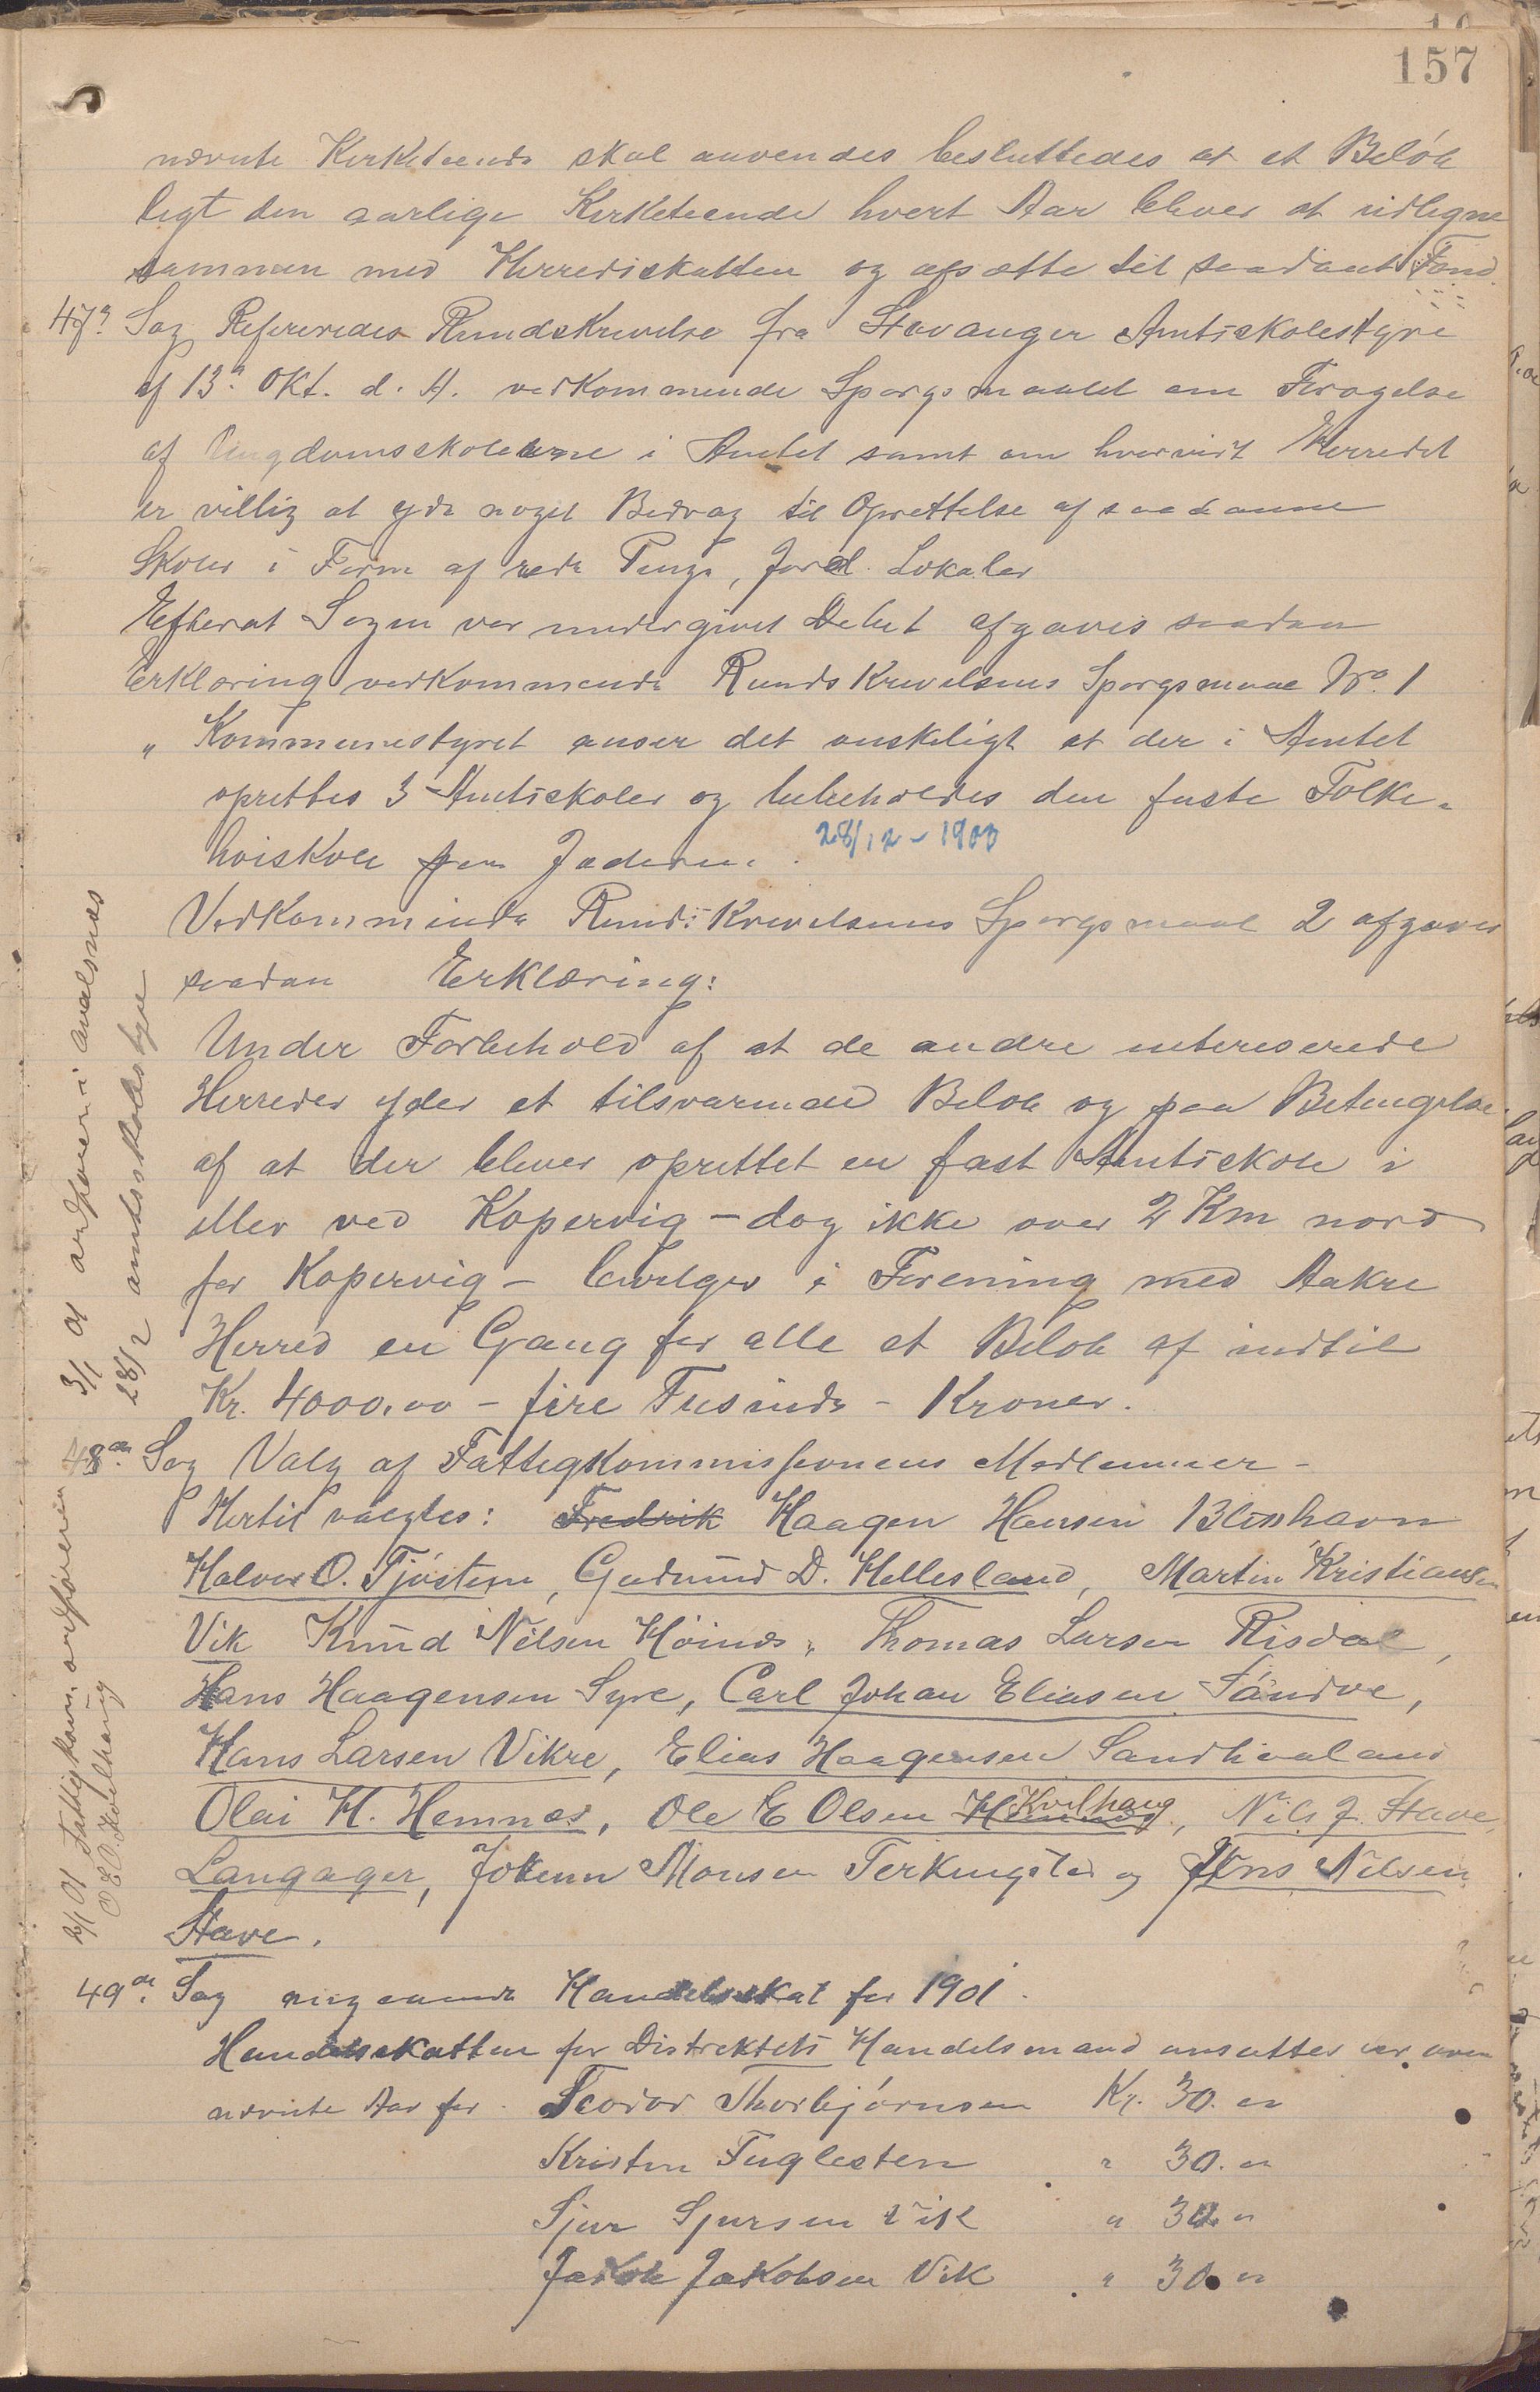 157
nævnte Kirketiende skal anvendes besluttedes at et Beløb
ligt den aarlige Kirketiende hvert Aar bliver at udligne
sammen med Herredsskatten og afsætte til saadant Fond.
47de Sag Refereredes Rundskrivelse fra Stavanger Amtsskolestyre
af 13de Okt. d. A. vedkommende Spørgsmaalet om Forøgelse
af Ungdomsskolerne i Amtet samt om hvorvidt Herredet
er villig at yde noget Bidrag til Oprettelse af saadanne
Skoler i Form af rede Penge, Jord. Lokaler
Efterat Sagen var undergivet Debat afgaves saadan
Erklæring vedkommende Rundskrivelsens Spørgsmaal No. 1
„ Kommunestyret anser det ønskeligt at der i Amtet
oprettes 3 Amtsskoler og bibeholdes den faste Folke-
høiskole paa Jæderen.
28/12 - 1900
Vedkommende Rundskrivelsens Spørgsmaal 2 afgaves
saadan Erklæring:
Under Forbehold af at de andre intereserede
Herreder yder et tilsvarende Beløb og paa Betingelse
af at der bliver oprettet en fast Amtsskole i
eller ved Kopervig – dog ikke over 2 Km nord
for Kopervig – bevilges i Forening med Aakre
Herred en Gang for alle et Beløb af indtil
Kr. 4000.00 – fire Tusinde – Kroner.
3/1 01 ordføreren i Avalsnæs
28/12 amtsskolestyre
48de Sag Valg af Fattigkommissionens Medlemmer –
Hertil valgtes: Fredrik Haagen Hansen Blixhavn
Halvor O. Tjøstem, Gudmund D. Hellesland, Martin Kristiansen
Vik Knud Nilsen Høines, Thomas Larsen Risdal,
Hans Haagensen Syre, Carl Johan Eliasen Sandve,
Hans Larsen Vikre, Elias Haagensen Sandhaaland
Olai H. Hemnes, Ole E Olsen Hemnes Kvilhaug, Nils J. Stave,
Langager, Jokum Monsen Terkingstad og Jens Nilsen
Stave.
2/1 01 Fattigkom. ordfører
O E O. Kvilhaug
49de Sag angaaende Handelsskat for 1901.
Handelsskatten for Distriktets Handelsmænd ansattes for oven
nævnte Aar for Teodor Thorbjørnsen Kr. 30. „
Kristen Fuglesten „ 30. „
Sjur Sjursen Vik „ 30. „
Jakob Jakobsen Vik „ 30. „